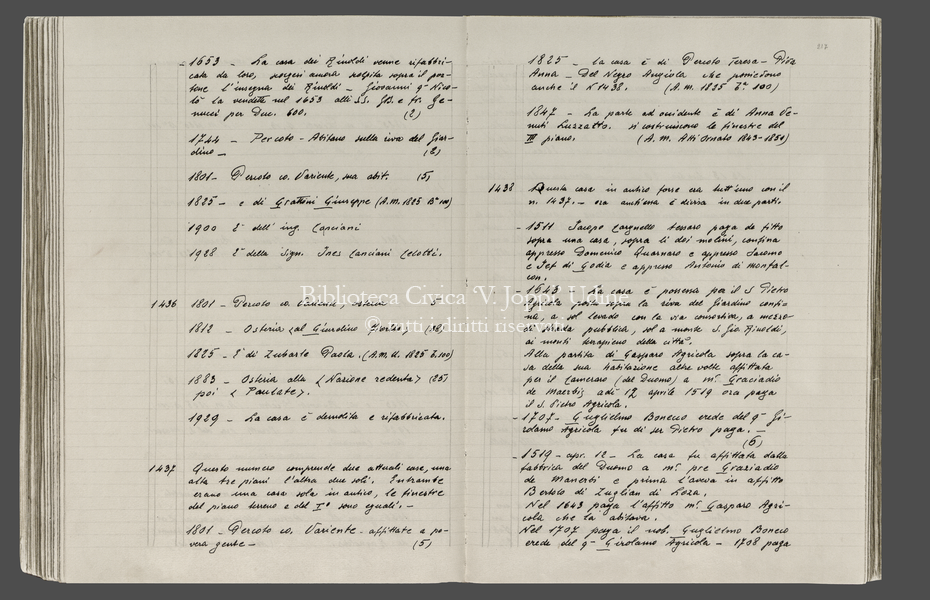 - 1653 - La casa dei Rinoldi venne rifabbri-
cata da loro, sorgeri ancora scolpita sopra il por-
tone l'insegna dei Rinoldi - Giovanni q.m Nico-
lò la vendette nel 1653 alli SS. GB. e fr. Ge-
nucci per Duc. 600. (2)
1744 - Percoto - Abitano sulla riva del Giar-
dino - (2)
1801 - Percoto co. Variente, sua abit. (5)
1825 - è di Grattoni Giuseppe (A.M. 1825 B° 100)
1900 È dell' ing. Canciani
1928 È della Sign. Ines Canciani Celotti.
1436 1801 - Percoto co. Variente,
1812 - Osteria (al Giardino (18)
1825 - È di Zubaro Paola. (A.M.U. 1825 E.100)
1883 - Osteria alla < Nazione redenta > (25)
poi < Paulate >.
1929 - La casa è demolita e rifabbricata.
1437 Questo numero comprende due attuali case, una
alta tre piani l'altra due soli. Entrambe
erano una casa sola in antico, le finestre
del piano terreno e del I° sono eguali. -
1801 - Percoto co. Variente - affittate a po-
vera gente - (5)
217
1825 - La casa è di Percoto Teresa - Piva
Anna - Del Negro Angiola che possiedono
anche il N° 1438. (A.M. 1825 E° 100)
1847 - La parte ad occidente è di Anna Ve-
nuti Luzzatto. si costruiscono le finestre del
III piano. (A.M. Atti Ornato 1843-1850)
1438 Questa casa in antico forse era tutt'uno con il
n. 1437. - ora anch'essa è divisa in due parti.
- 1511 Jacopo Cargnello tessaro paga de fitto
sopra una casa, sopra li doi molini, confina
appresso Domenico Quarnaro e appresso Jacomo
e Jof di Godia e appresso Antonio di Monfal-
con.
- 1643 - La casa è possessa per il S. Pietro
Agricola posta sopra la riva del Giardino confi-
na, a sol levado con la via consortiva, a mezzo-
dì strada pubblica, sol a monte S. Gio Rinoldi,
ai monti terrapieno della città.
Alla partita di Gasparo Agricola sopra la ca-
sa della sua habitazione altre volte affittata
per il Cameraro (del Duomo) a m.r Graciadio
de Maerbis adì 12 aprile 1519 ora paga
il S. Pietro Agricola.
- 1707 - Guglielmo Boneco erede del q.m Gi-
rolamo Agricola fu di ser Pietro paga. -
(6)
- 1519 - apr. 12 - La casa fu affittata dalla
fabbrica del Duomo a m.r pre Graziadio
de Manerbi e prima l'aveva in affitto
Bertolo di Zuglian di Loza.
Nel 1643 paga l'affitto m.r Gasparo Agri-
cola che la abitava.
Nel 1707 paga il nob. Guglielmo Boneco
erede del q.m Girolamo Agricola - 1708 paga
Biblioteca Civica 'V. Joppi' Udine
© tutti i diritti riservati